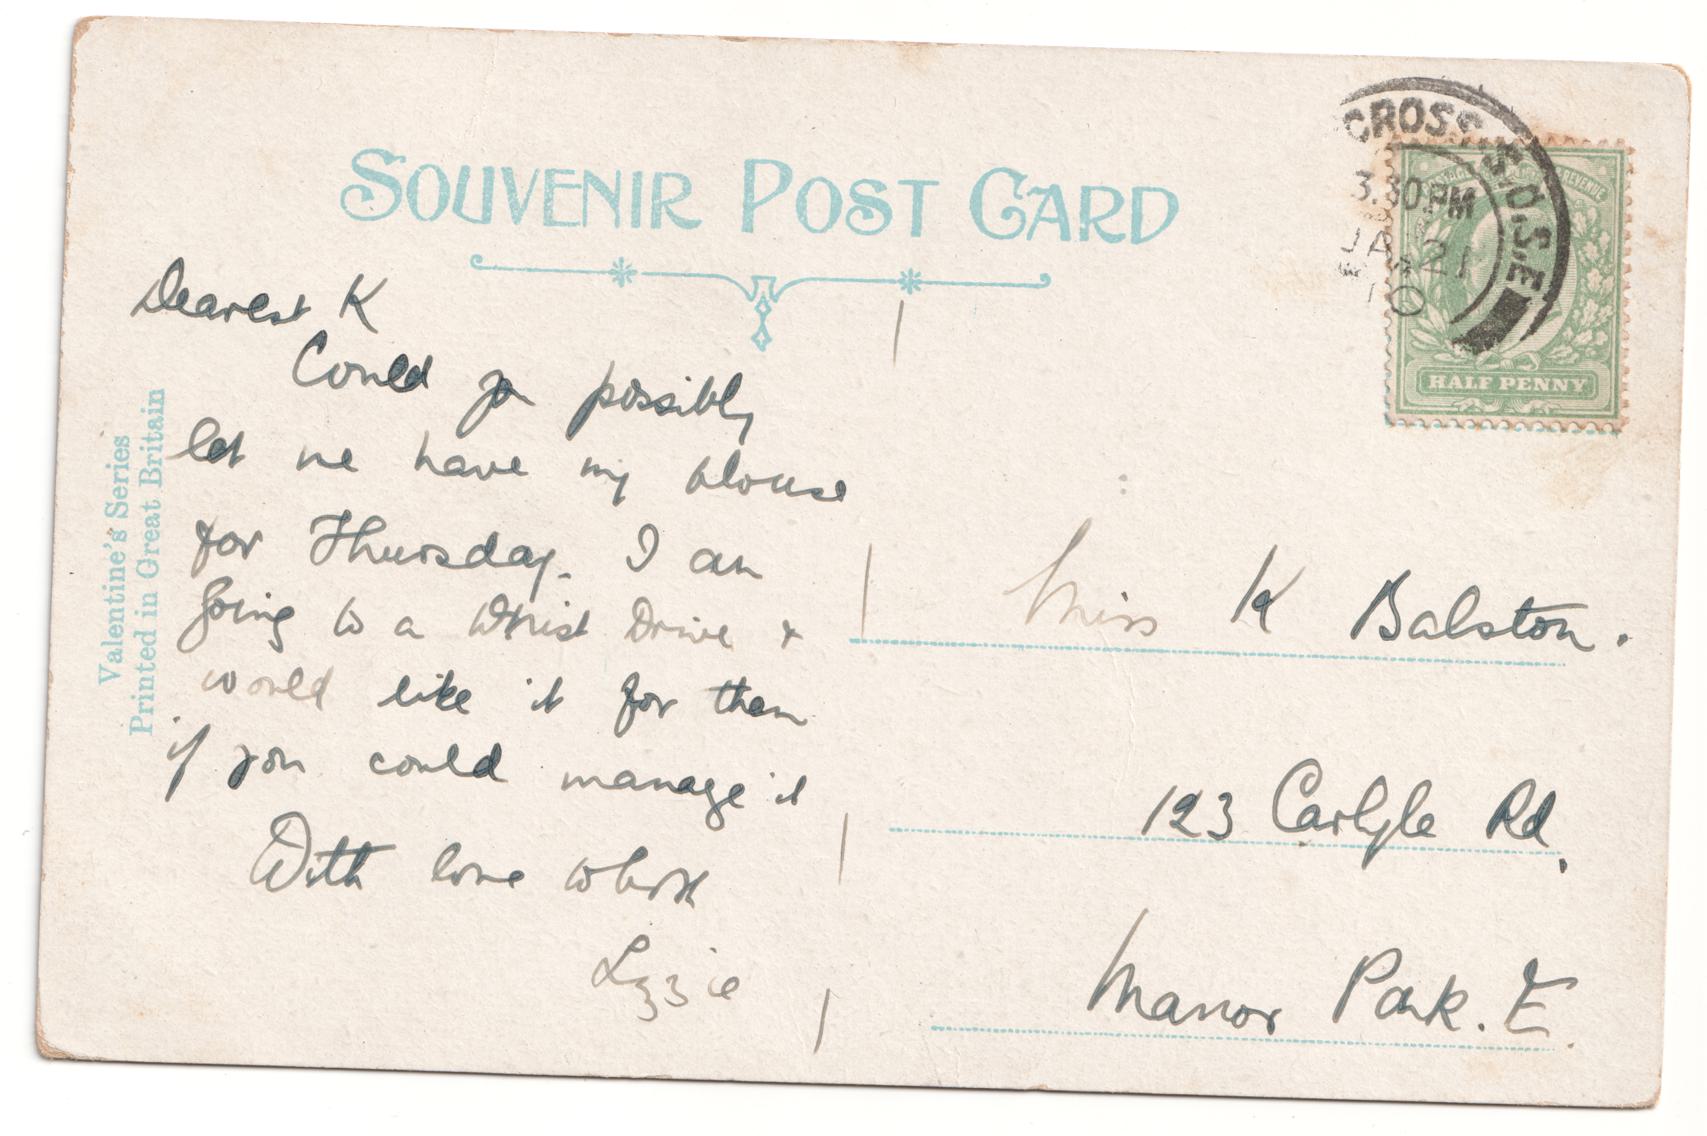 SOUVENIR POST CARD
CROSS S.O.S.E
3.30PM
JA 21
10
HALF PENNY
Valentine's Series
Printed in Great Britain
Dearest K
Could you possibly
let me have my blouse
for Thursday. I am
going to a Whist Drive &
would like it for then
if you could manage it
With love
Lizzie
Miss K Balston.
123 Carlyle Rd,
Manor Park. E.